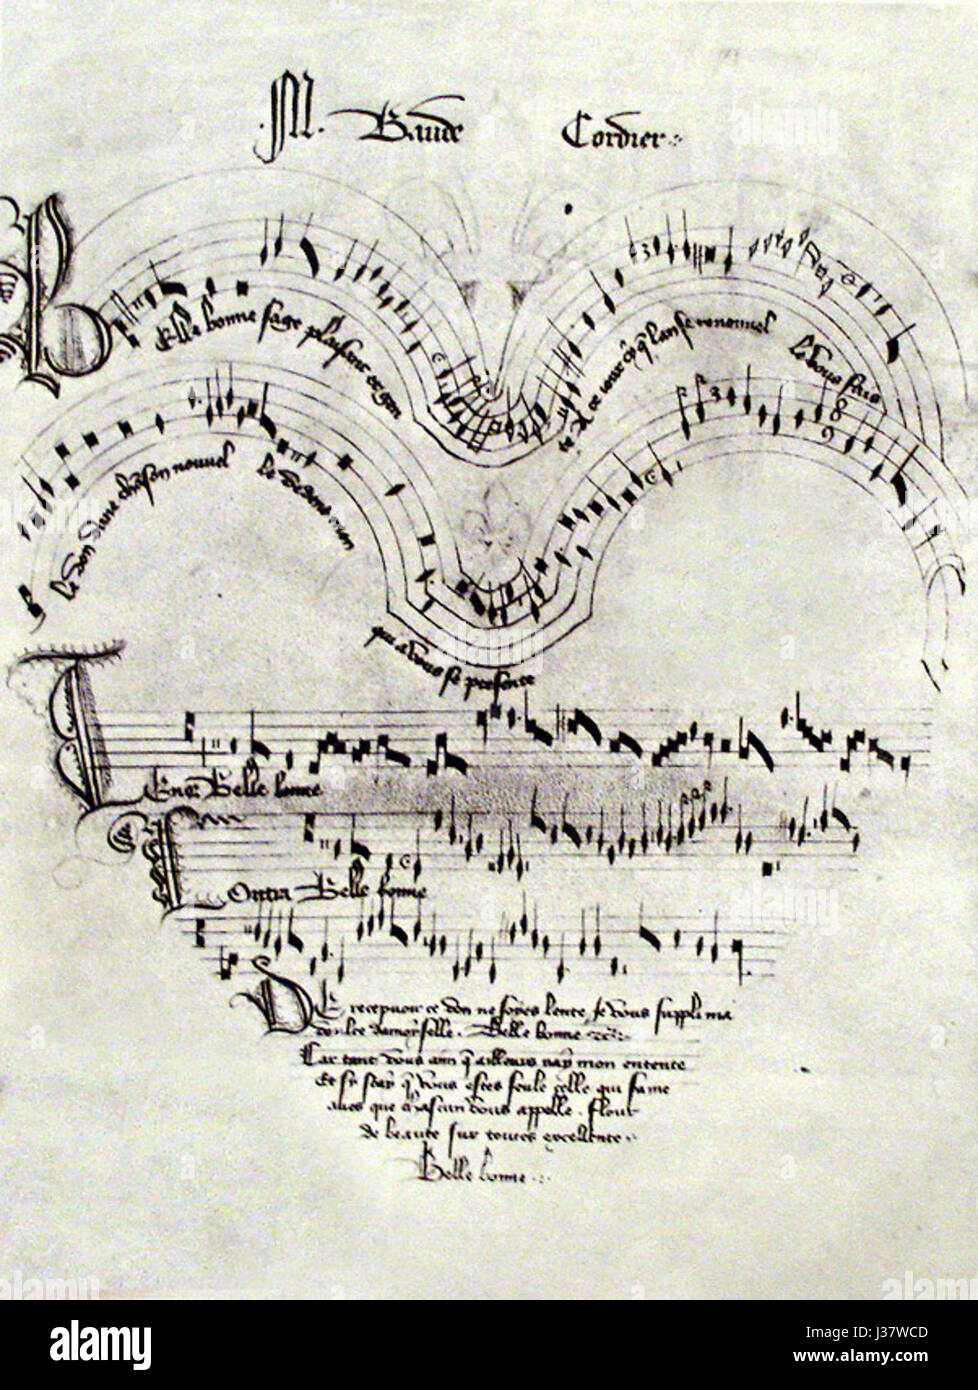 .M. Baude Cordier:
Elle bonne sage plaisant et gen
te A ce jour cy q lan se renouvel
le vous fais
le don dune chason nouvel
le dedens mon
qui a vous se presente
Tenor Belle bonne
Contra Belle bonne
De recepvoir ce don ne soyes lente, Je vous suppli ma
doulce damoyselle. Belle bonne
Car tant vous aim q aillours nay mon entente
Et sy scay q vous estes seule celle qui fame
aves que chascun vous appelle. Flour
de beaute sur toutes excellente.
Belle bonne
alamy
Image ID: J37WCD
www.alamy.com